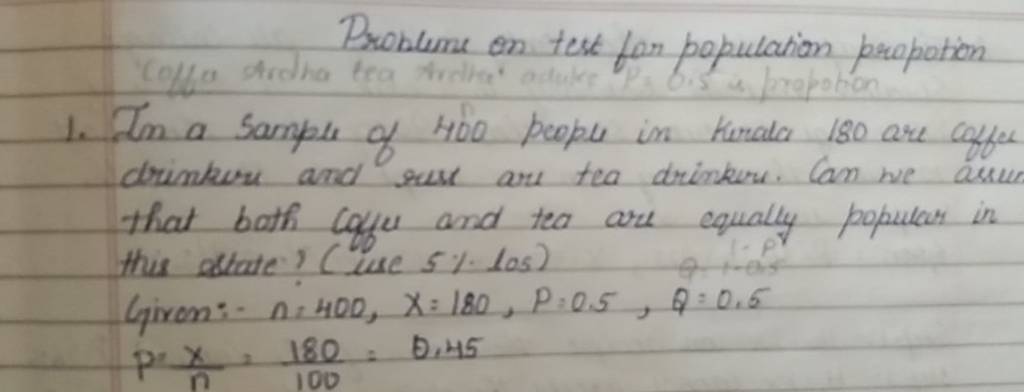 Problems on test for population propotion
Coffee Ardha tea Ardha P = 0.5 is propotion
n
1. In a Sample of 400 people in Kerala 180 are coffee
drinkers and rest are tea drinkers. Can we
that both Coffee and tea are equally popular in
1 - P
this state? (use 5% los) Q = 1-0.5
Given:- n=400, X=180, P=0.5, Q=0.5
p = x/n = 180/100 = 0.45